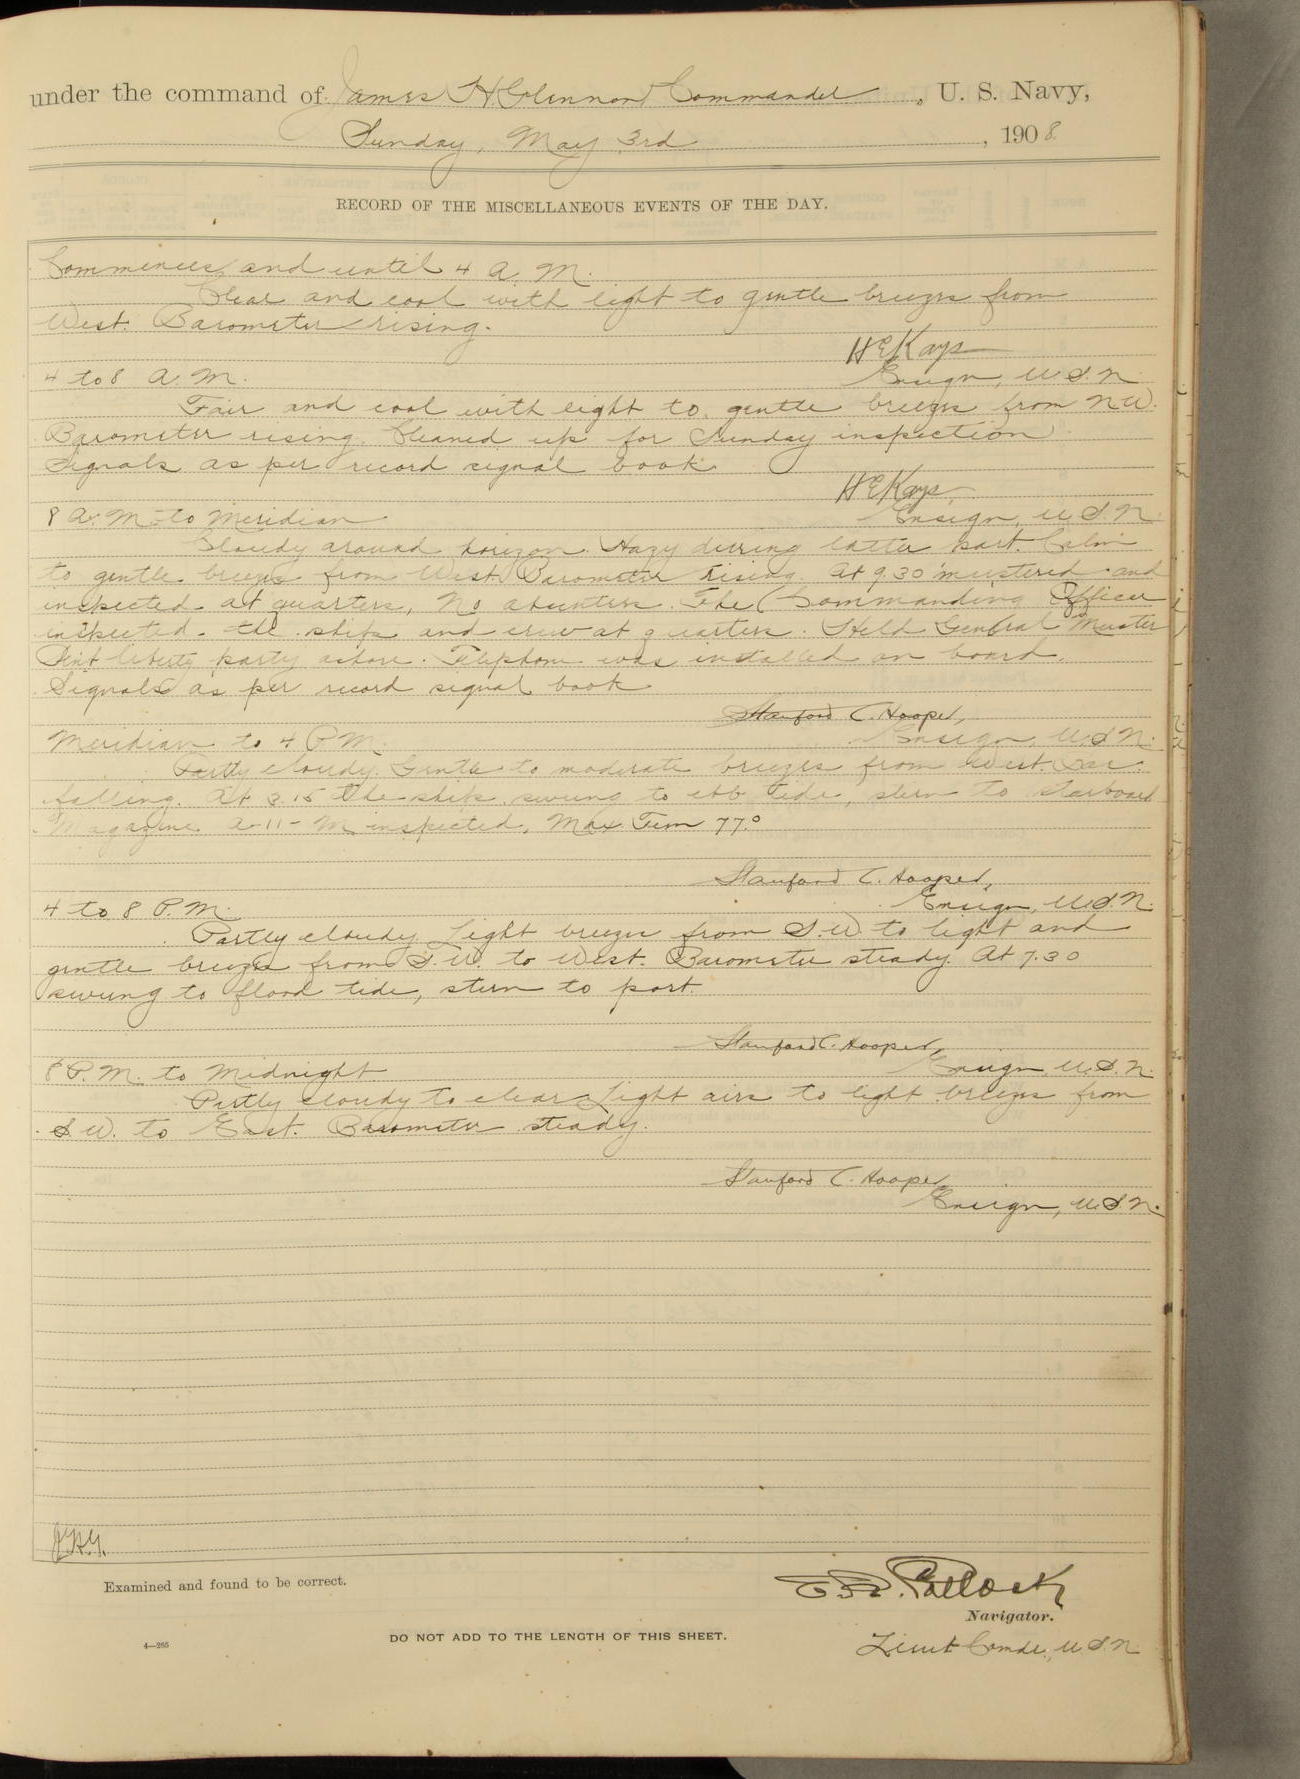 under the command of James H Glennon Commander, U. S. Navy,
Sunday, May 3rd, 1908
RECORD OF THE MISCELLANEOUS EVENTS OF THE DAY.
Commences and until 4 A. M.
Clear and cool with light to gentle breezes from
West. Barometer rising.
H E Kays
4 to 8 A. M. Ensign, U S. N
Fair and cool with light to gentle breezes from NW.
Barometer rising. Cleaned up for Sunday inspection
Signals as per record signal book
H E Kays
8 A. M to Meridian Ensign, U. S. N.
Cloudy around horizon. Hazy during latter part. Calm
to gentle breezes from West. Barometer rising. At 9.30 mustered and
inspected at quarters, No absentees. The Commanding Officer
inspected the ship and crew at quarters. Held General Muster
Sent liberty party ashore. Telephone was installed on board.
Signals as per record signal book
Stanford C. Hooper,
Meridian to 4 P M. Ensign, U. S N.
Partly cloudy. Gentle to moderate breezes from West. Bar.
falling. At 3.15 the ship swung to ebb tide, stern to starboard
Magazine A-11-M inspected, Max Tem 77°
Stanford C. Hooper,
4 to 8 P. M. Ensign, U. S. N.
Partly cloudy Light breezes from S.W. to light and
gentle breezes from S.W. to West. Barometer steady. At 7.30
swung to flood tide, stern to port.
Stanford C. Hooper,
8 P. M. to Midnight Ensign, U. S. N.
Partly cloudy to clear Light airs to light breezes from
S. W. to East. Barometer steady.
Stanford C. Hooper
Ensign, U. S. N.
J.H.G.
Examined and found to be correct.
E. R. Pollock
Navigator.
4—265
DO NOT ADD TO THE LENGTH OF THIS SHEET.
Lieut Comdr., U S N